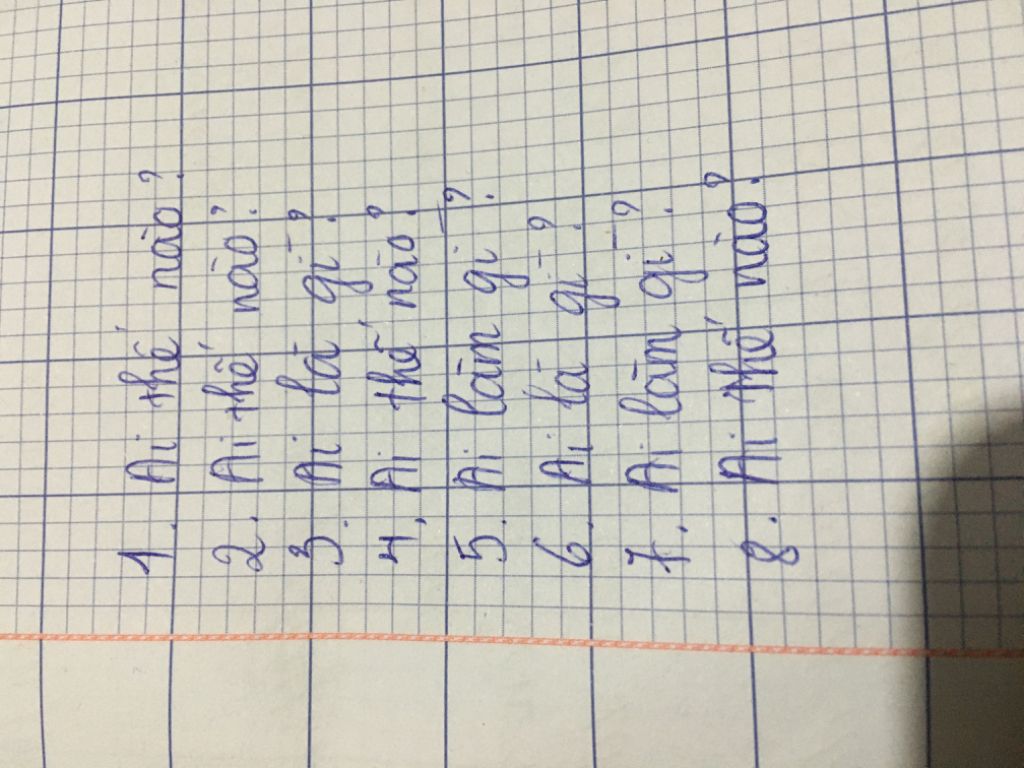 1. Ai thế nào?
2. Ai thế nào?
3. Ai là gì?
4. Ai thế nào?
5. Ai làm gì?
6. Ai là gì?
7. Ai làm gì?
8. Ai thế nào?